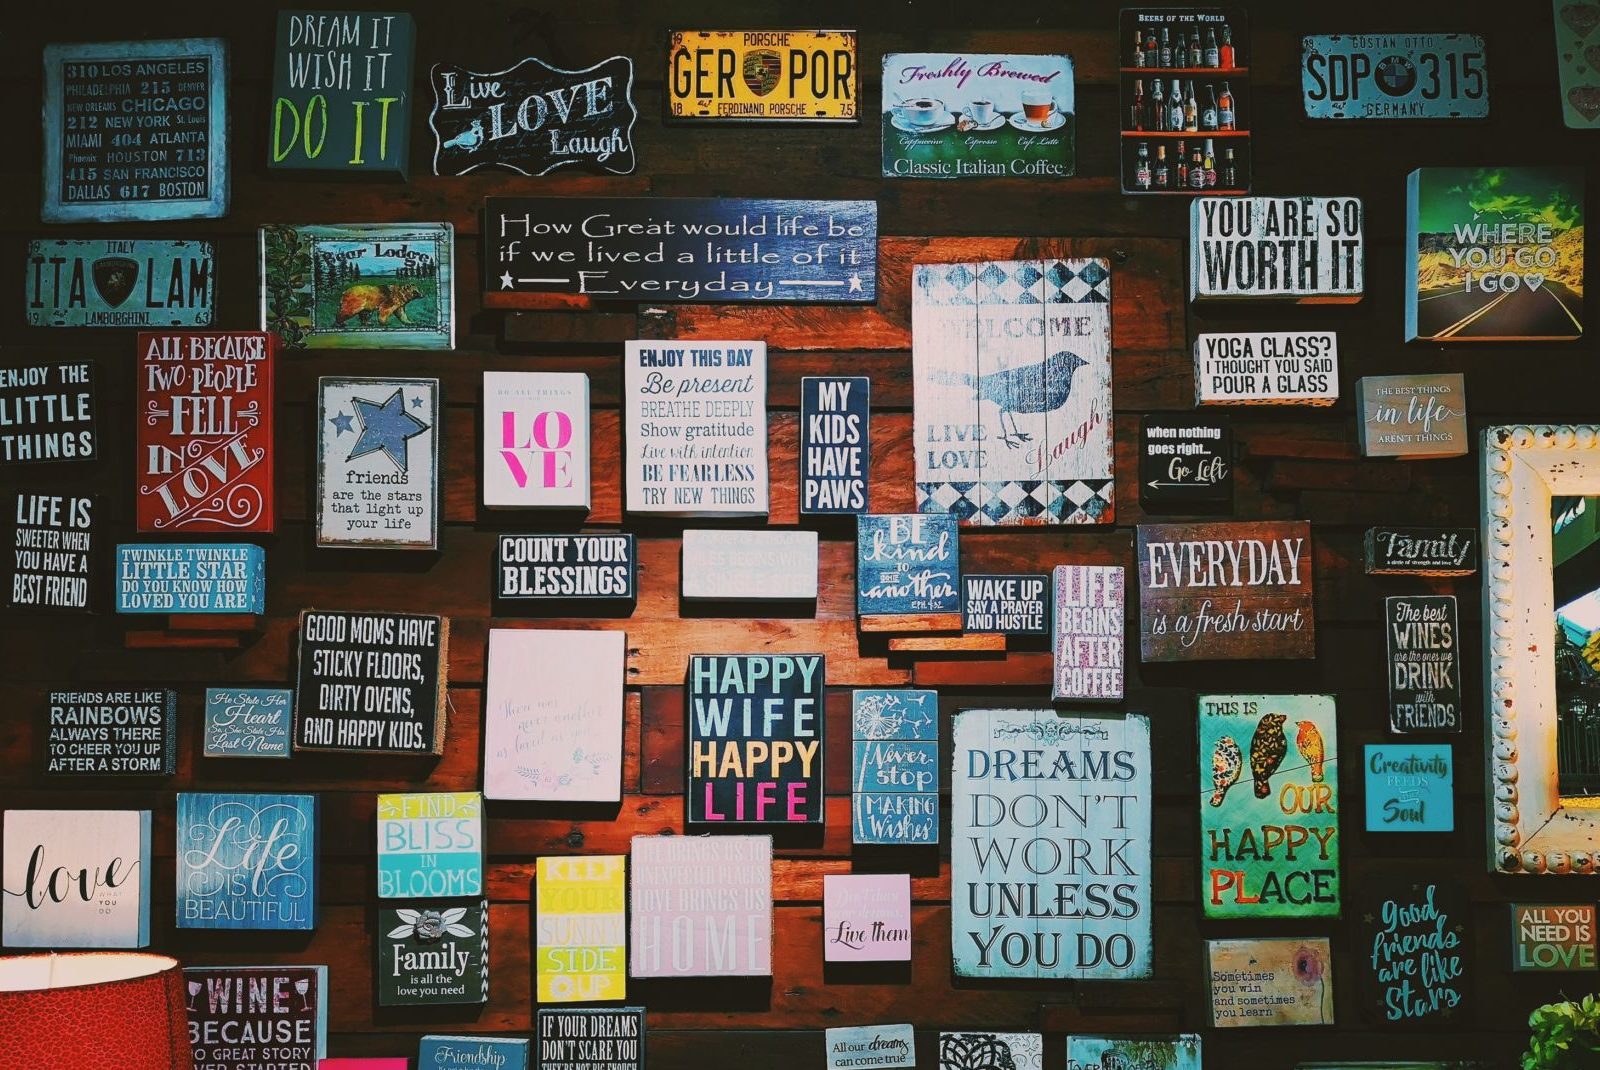 310 LOS ANGELES
PHILADELPHIA 215 DENVER
NEW ORLEANS CHICAGO
212 NEW YORK St. Louis
MIAMI 404 ATLANTA
Phoenix HOUSTON 713
415 SAN FRANCISCO
DALLAS 617 BOSTON
DREAM IT
WISH IT
DO IT
Live
LOVE
Laugh
PORSCHE
GER POR
18 FERDINAND PORSCHE 75
Freshly Brewed
Cappuccino Espresso Cafe Latte
Classic Italian Coffee
BEERS OF THE WORLD
GUSTAN OTTO
SDP BMW 315
GERMANY
19 ITALY
ITA LAM
19 LAMBORGHINI 63
Bear Lodge
How Great would life be
if we lived a little of it
Everyday
YOU ARE SO
WORTH IT
WHERE
YOU GO
I GO
ENJOY THE
LITTLE
THINGS
ALL BECAUSE
TWO PEOPLE
FELL
IN
LOVE
friends
are the stars
that light up
your life
DO ALL THINGS
LO
VE
ENJOY THIS DAY
Be present
BREATHE DEEPLY
Show gratitude
Live with intention
BE FEARLESS
TRY NEW THINGS
MY
KIDS
HAVE
PAWS
WELCOME
LIVE
LOVE
Laugh
YOGA CLASS?
I THOUGHT YOU SAID
POUR A GLASS
THE BEST THINGS
in life
AREN'T THINGS
when nothing
goes right...
Go Left
LIFE IS
SWEETER WHEN
YOU HAVE A
BEST FRIEND
TWINKLE TWINKLE
LITTLE STAR
DO YOU KNOW HOW
LOVED YOU ARE
COUNT YOUR
BLESSINGS
BE
kind
TO
ONE
another
EPH. 4:32
WAKE UP
SAY A PRAYER
AND HUSTLE
LIFE
BEGINS
AFTER
COFFEE
EVERYDAY
is a fresh start
Family
a circle of strength and love
The best
WINES
are the ones we
DRINK
with
FRIENDS
GOOD MOMS HAVE
STICKY FLOORS,
DIRTY OVENS,
AND HAPPY KIDS.
FRIENDS ARE LIKE
RAINBOWS
ALWAYS THERE
TO CHEER YOU UP
AFTER A STORM
He Stole Her
Heart
So She Stole His
Last Name
There was
never another
as loved as you
HAPPY
WIFE
HAPPY
LIFE
Never
stop
MAKING
Wishes
DREAMS
DON'T
WORK
UNLESS
YOU DO
THIS IS
OUR
HAPPY
PLACE
Creativity
FEEDS
THE
Soul
love
WHAT
YOU
DO
Life
IS
BEAUTIFUL
FIND
BLISS
IN
BLOOMS
Family
is all the
love you need
KEEP
YOUR
SUNNY
SIDE
UP
LIFE BRINGS US TO
UNEXPECTED PLACES
LOVE BRINGS US
HOME
Live them
Sometimes
you win
and sometimes
you learn
Good
friends
are like
Stars
ALL YOU
NEED IS
LOVE
WINE
BECAUSE
NO GREAT STORY
EVER STARTED
Friendship
IF YOUR DREAMS
DON'T SCARE YOU
THEY'RE NOT BIG ENOUGH
All our dreams
can come true